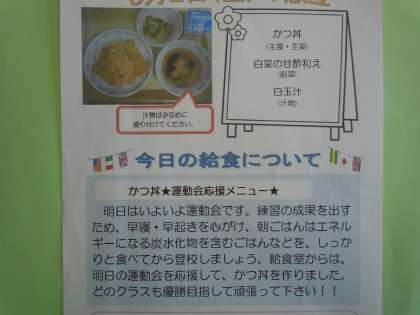 かつ丼
（主食・主菜）
白菜の甘酢和え
（副菜）
白玉汁
（汁物）
汁物は少なめに
盛り付けてください。
今日の給食について
かつ丼★運動会応援メニュー★
明日はいよいよ運動会です。練習の成果を出す
ため、早寝・早起きを心がけ、朝ごはんはエネル
ギーになる炭水化物を含むごはんなどを、しっか
りと食べてから登校しましょう。給食室からは、
明日の運動会を応援して、かつ丼を作りました。
どのクラスも優勝目指して頑張って下さい！！